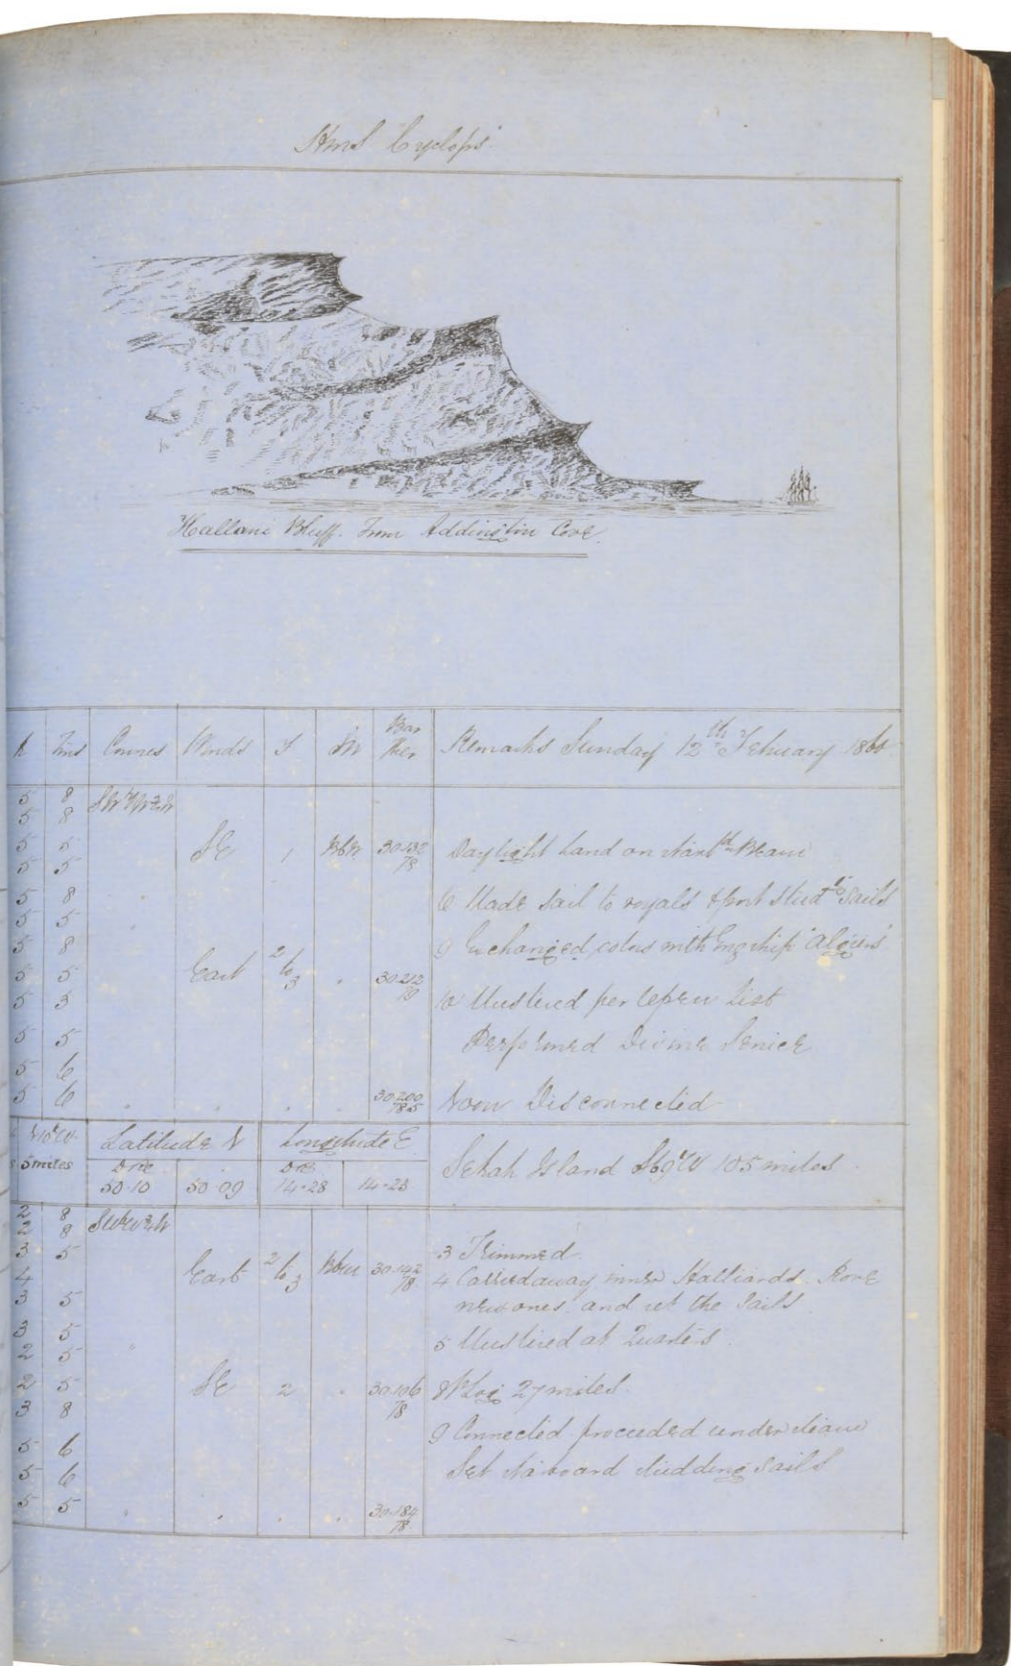 HMS "Cyclops"
Hallani Bluff. From Addington Cove.
K Fms Courses Winds F W Bar Ther Remarks Sunday 12th February 1860
5 8
5 8
5 5 SE 1 30.132 78 Daylight Land on starbd Beam
5 5
5 8 6 Made sail to royals & port studg sails
5 5
5 8 9 Exchanged colors with Eng ship "Algiers"
5 5 East 2 to 3 30.212 79
5 3 10 Mustered per Open list
5 5 Performed Divine Service
5 6
5 6 30.200 78.5 Noon Disconnected
Latitude N Longitude E
5 miles DR DR
50.10 50.09 14.28 14.28
Sekah Island S69°W 105 miles
2 8
2 8
3 5 3 Trimmed
4 East 2 to 3 30.142 78 4 Carried away inner Halliards. Rove
3 5 new ones and set the sails
3 5 5 Mustered at Quarters
2 5
2 5 SE 2 30.106 78 Log 27 miles
3 8
5 6 9 Connected proceeded under steam
5 6 Set starboard studding sails
5 5 30.184 78